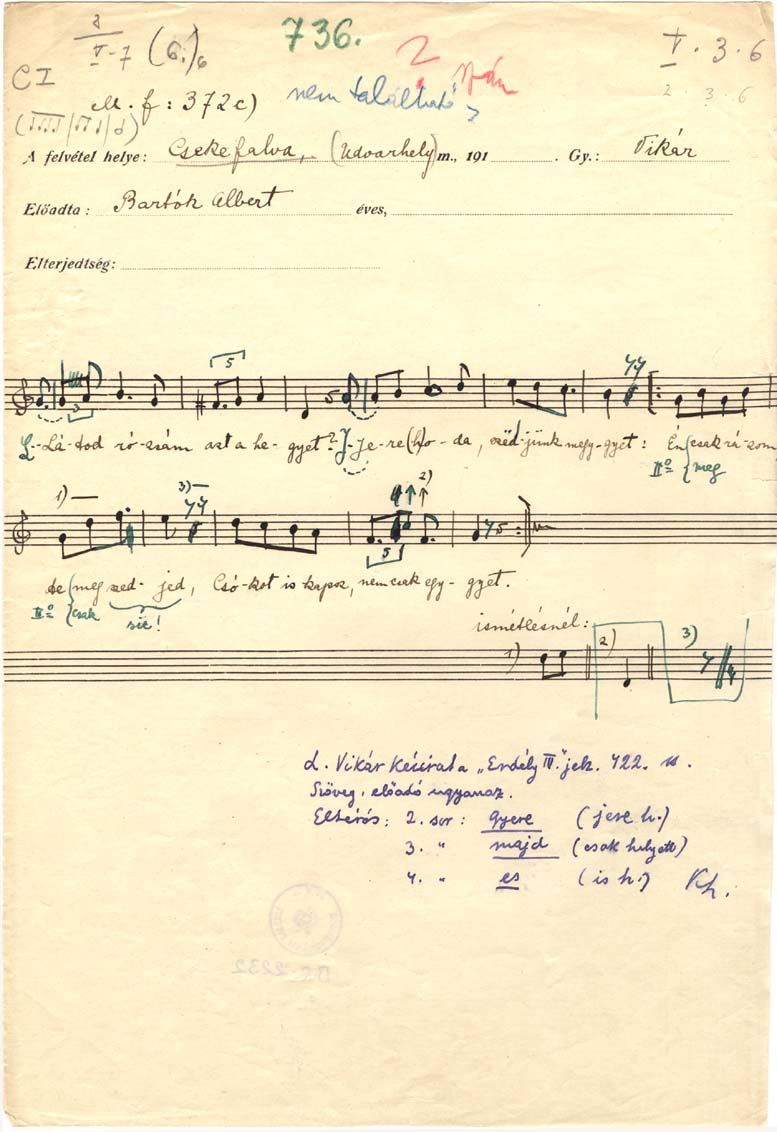 736.
2
V-7 (6.)6
V . 3 . 6
2 . 3 . 6
C I
M. f : 372 c)
nem található
A felvétel helye: Csekefalva, (Udvarhely) m., 191 . Gy.: Vikár
Előadta: Bartók Albert éves,
Elterjedtség:
5
3
5
Lá-tod ró-zsám azt a he-gyet? Jje-re (h)o-da, szëd-jünk megy-gyet: Én csak rá-zom
IIº meg
1) 3) 2)
5
te meg szed-jed, Csó-kot is kapsz, nem csak egy-gyet.
IIº csak sic!
ismétlésnél:
1) 2) 3)
L. Vikár kézirata "Erdély IV." jelz. 422. sz.
Szöveg, előadó ugyanaz.
Eltérés: 2. sor: gyere (jere h.)
3. " majd (csak helyett)
4. " es (is h.)